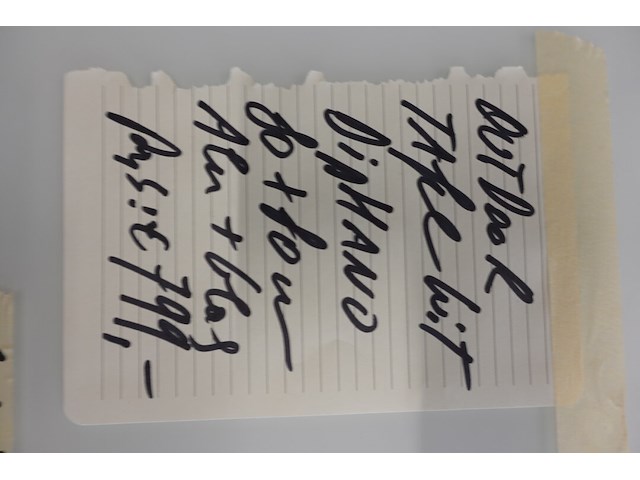 OUTDOOR
TAFEL Wit
DiPHANO
80 + 80 cm
Alu + Glas
Prijs: € 799,-